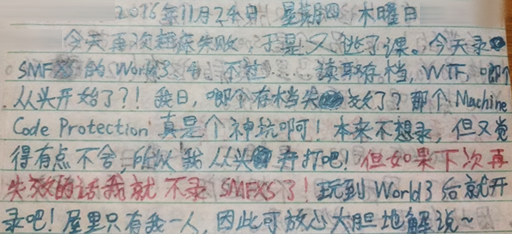 2016年11月24日 星期四 木曜日
今天再次起床失败,于是又逃了课。今天录
SMF 的 World3 读取存档,WTF,咋
从头开始了?!我日,咋个存档失效了?那个 Machine
Code Protection 真是个神坑啊!本来不想录,但又觉
得有点不舍,所以我从头开打吧!但如果下次再
失效的话我就不录 SMFXS了!玩到 World3 后就开
录吧!屋里只有我一人,因此可放心大胆地解说~